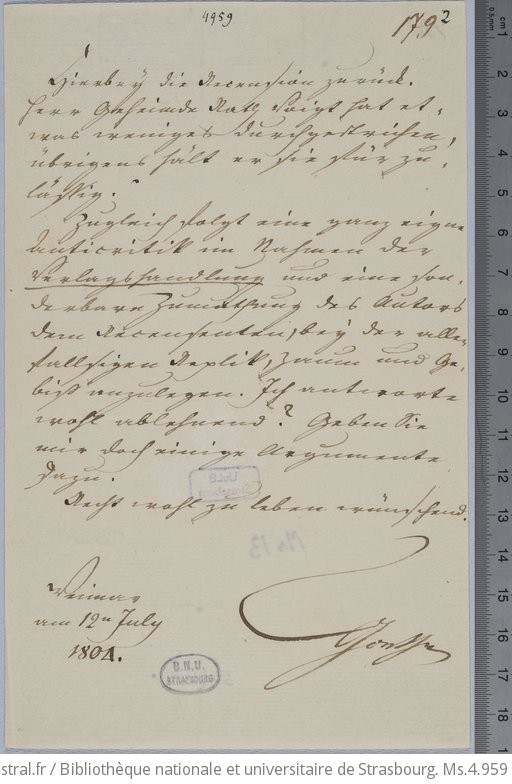 4959
179²
Hierbey die Recension zurück.
Herr Geheimde Rath Voigt hat et-
was weniges durchgestrichen,
übrigens hält er sie für zu-
lässig.
Zugleich folgt eine ganz eigne
Anticritik im Nahmen der
Verlagshandlung und eine son-
derbare Zumuthung des Autors
dem Recensenten, bey der allen-
fallsigen Replik, Zaum und Ge-
biß anzulegen. Ich antworte
wohl ablehnend? Geben Sie
mir doch einige Argumente
dazu.
Recht wohl zu leben wünschend.
Weimar
am 12n July
1804.
Goethe
B.N.U.
STRASBOURG
cm 1 2 3 4 5 6 7 8 9 10 11 12 13 14 15 16 17 18
0.5mm
stral.fr / Bibliothèque nationale et universitaire de Strasbourg. Ms.4.959